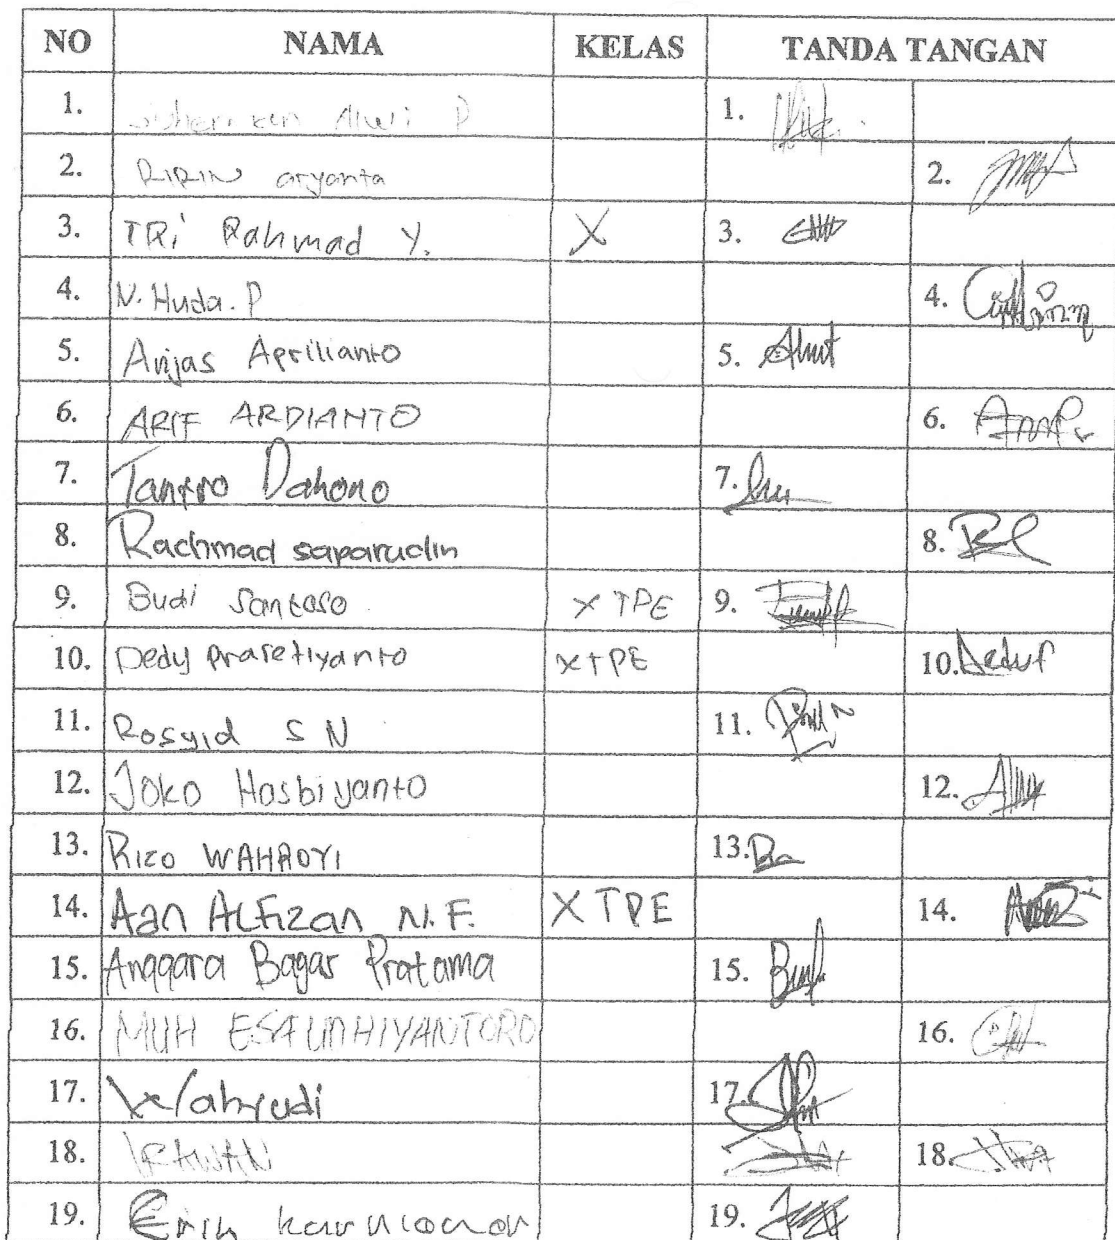 NO NAMA KELAS TANDA TANGAN
1. Alwi P 1.
2. RIRIN aryanta 2.
3. TRi Rahmad Y. X 3.
4. N. Huda. P 4.
5. Anjas Aprilianto 5.
6. ARIF ARDIANTO 6.
7. Dahono 7.
8. Rachmad saparudin 8.
9. Budi Santoso X TPE 9.
10. Dedy prasetiyanto X TPE 10.
11. Rosyid S N 11.
12. Joko Hasbiyanto 12.
13. Rizo 13.
14. Aan ALFizan N.F. X TPE 14.
15. Anggara Bagas Pratama 15.
16. MUH 16.
17. Wahyudi 17.
18. IRAWAN 18.
19. 19.